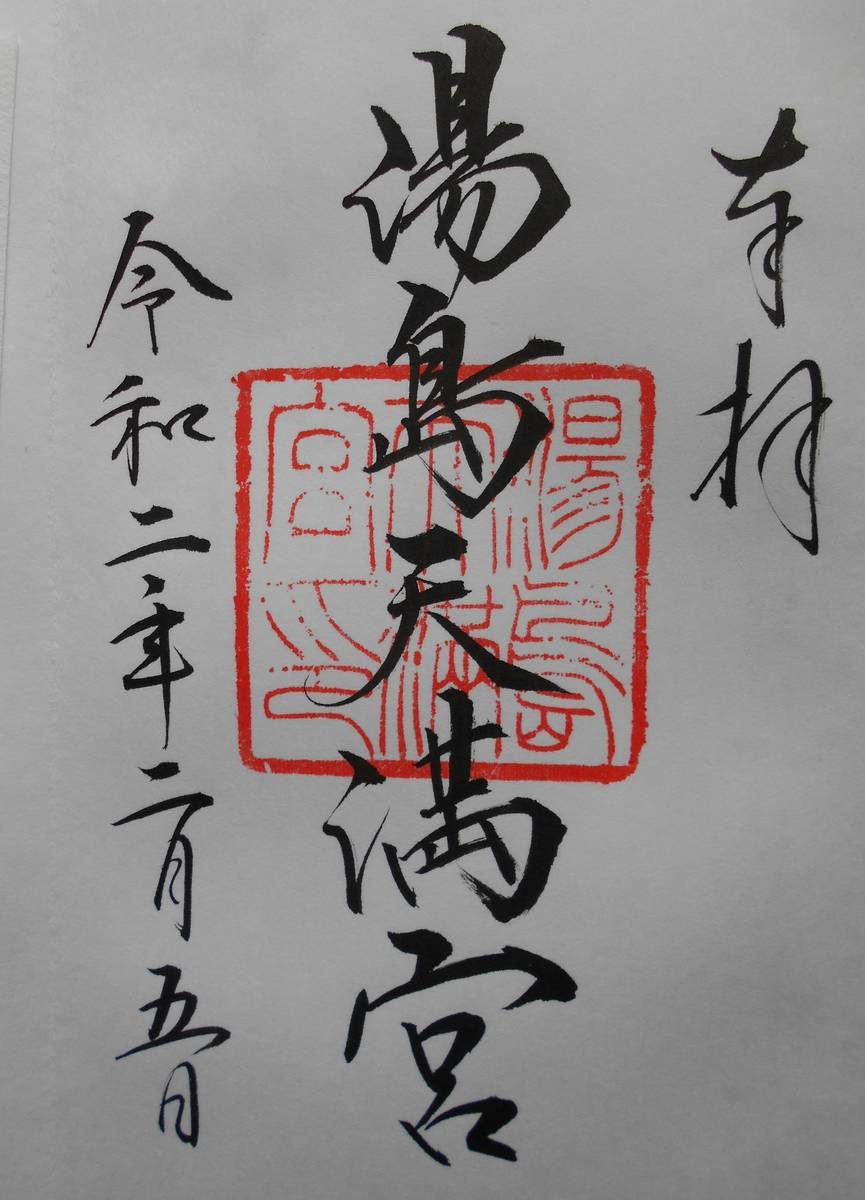 奉拝
湯島天満宮
令和二年二月五日
湯島
天満
宮印